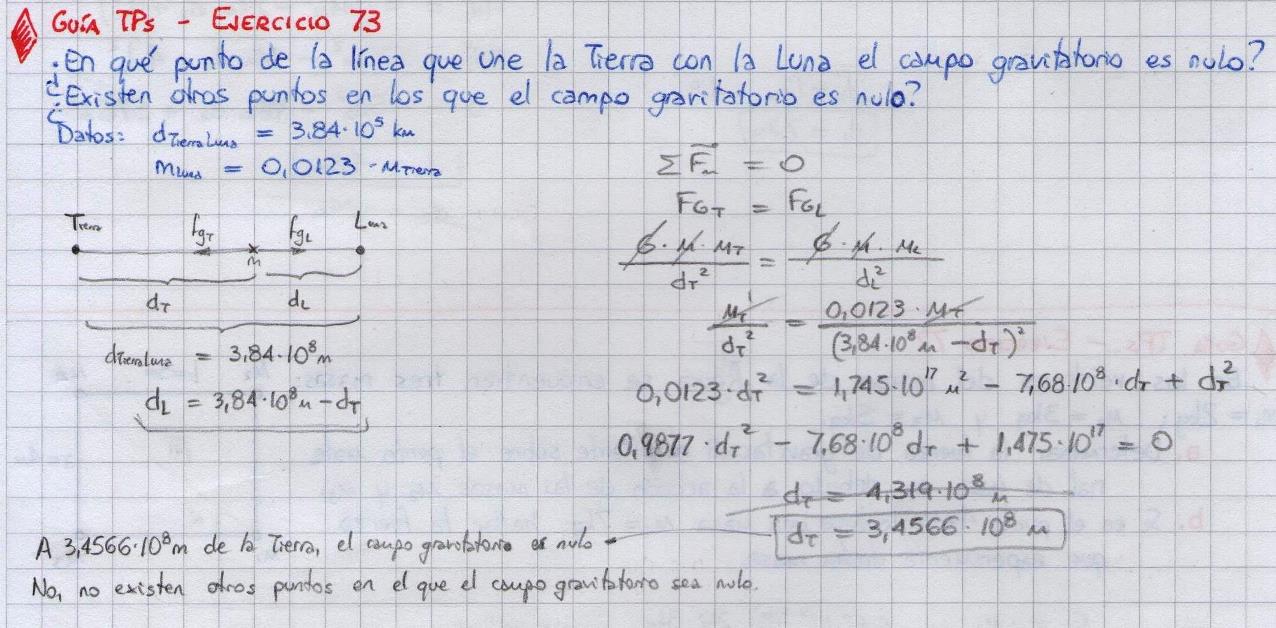 GUÍA TPs - EJERCICIO 73
¿En qué punto de la línea que une la Tierra con la Luna el campo gravitatorio es nulo?
¿Existen otros puntos en los que el campo gravitatorio es nulo?
Datos: dTierraLuna = 3.84·10⁵ km
mLuna = 0,0123 · MTierra
Tierra FgT FgL Luna
m
dT dL
dTierraLuna = 3,84·10⁸ m
dL = 3,84·10⁸ m - dT
Σ Fm = 0
FGT = FGL
G · M · MT / dT² = G · M · ML / dL²
MT 1 / dT² = 0,0123 · MT / (3,84·10⁸ m - dT)²
0,0123 · dT² = 1,745·10¹⁷ m² - 7,68·10⁸ · dT + dT²
0,9877 · dT² - 7,68·10⁸ dT + 1,475·10¹⁷ = 0
dT = 4,319·10⁸ m
dT = 3,4566 · 10⁸ m
A 3,4566·10⁸ m de la Tierra, el campo gravitatorio es nulo
No, no existen otros puntos en el que el campo gravitatorio sea nulo.